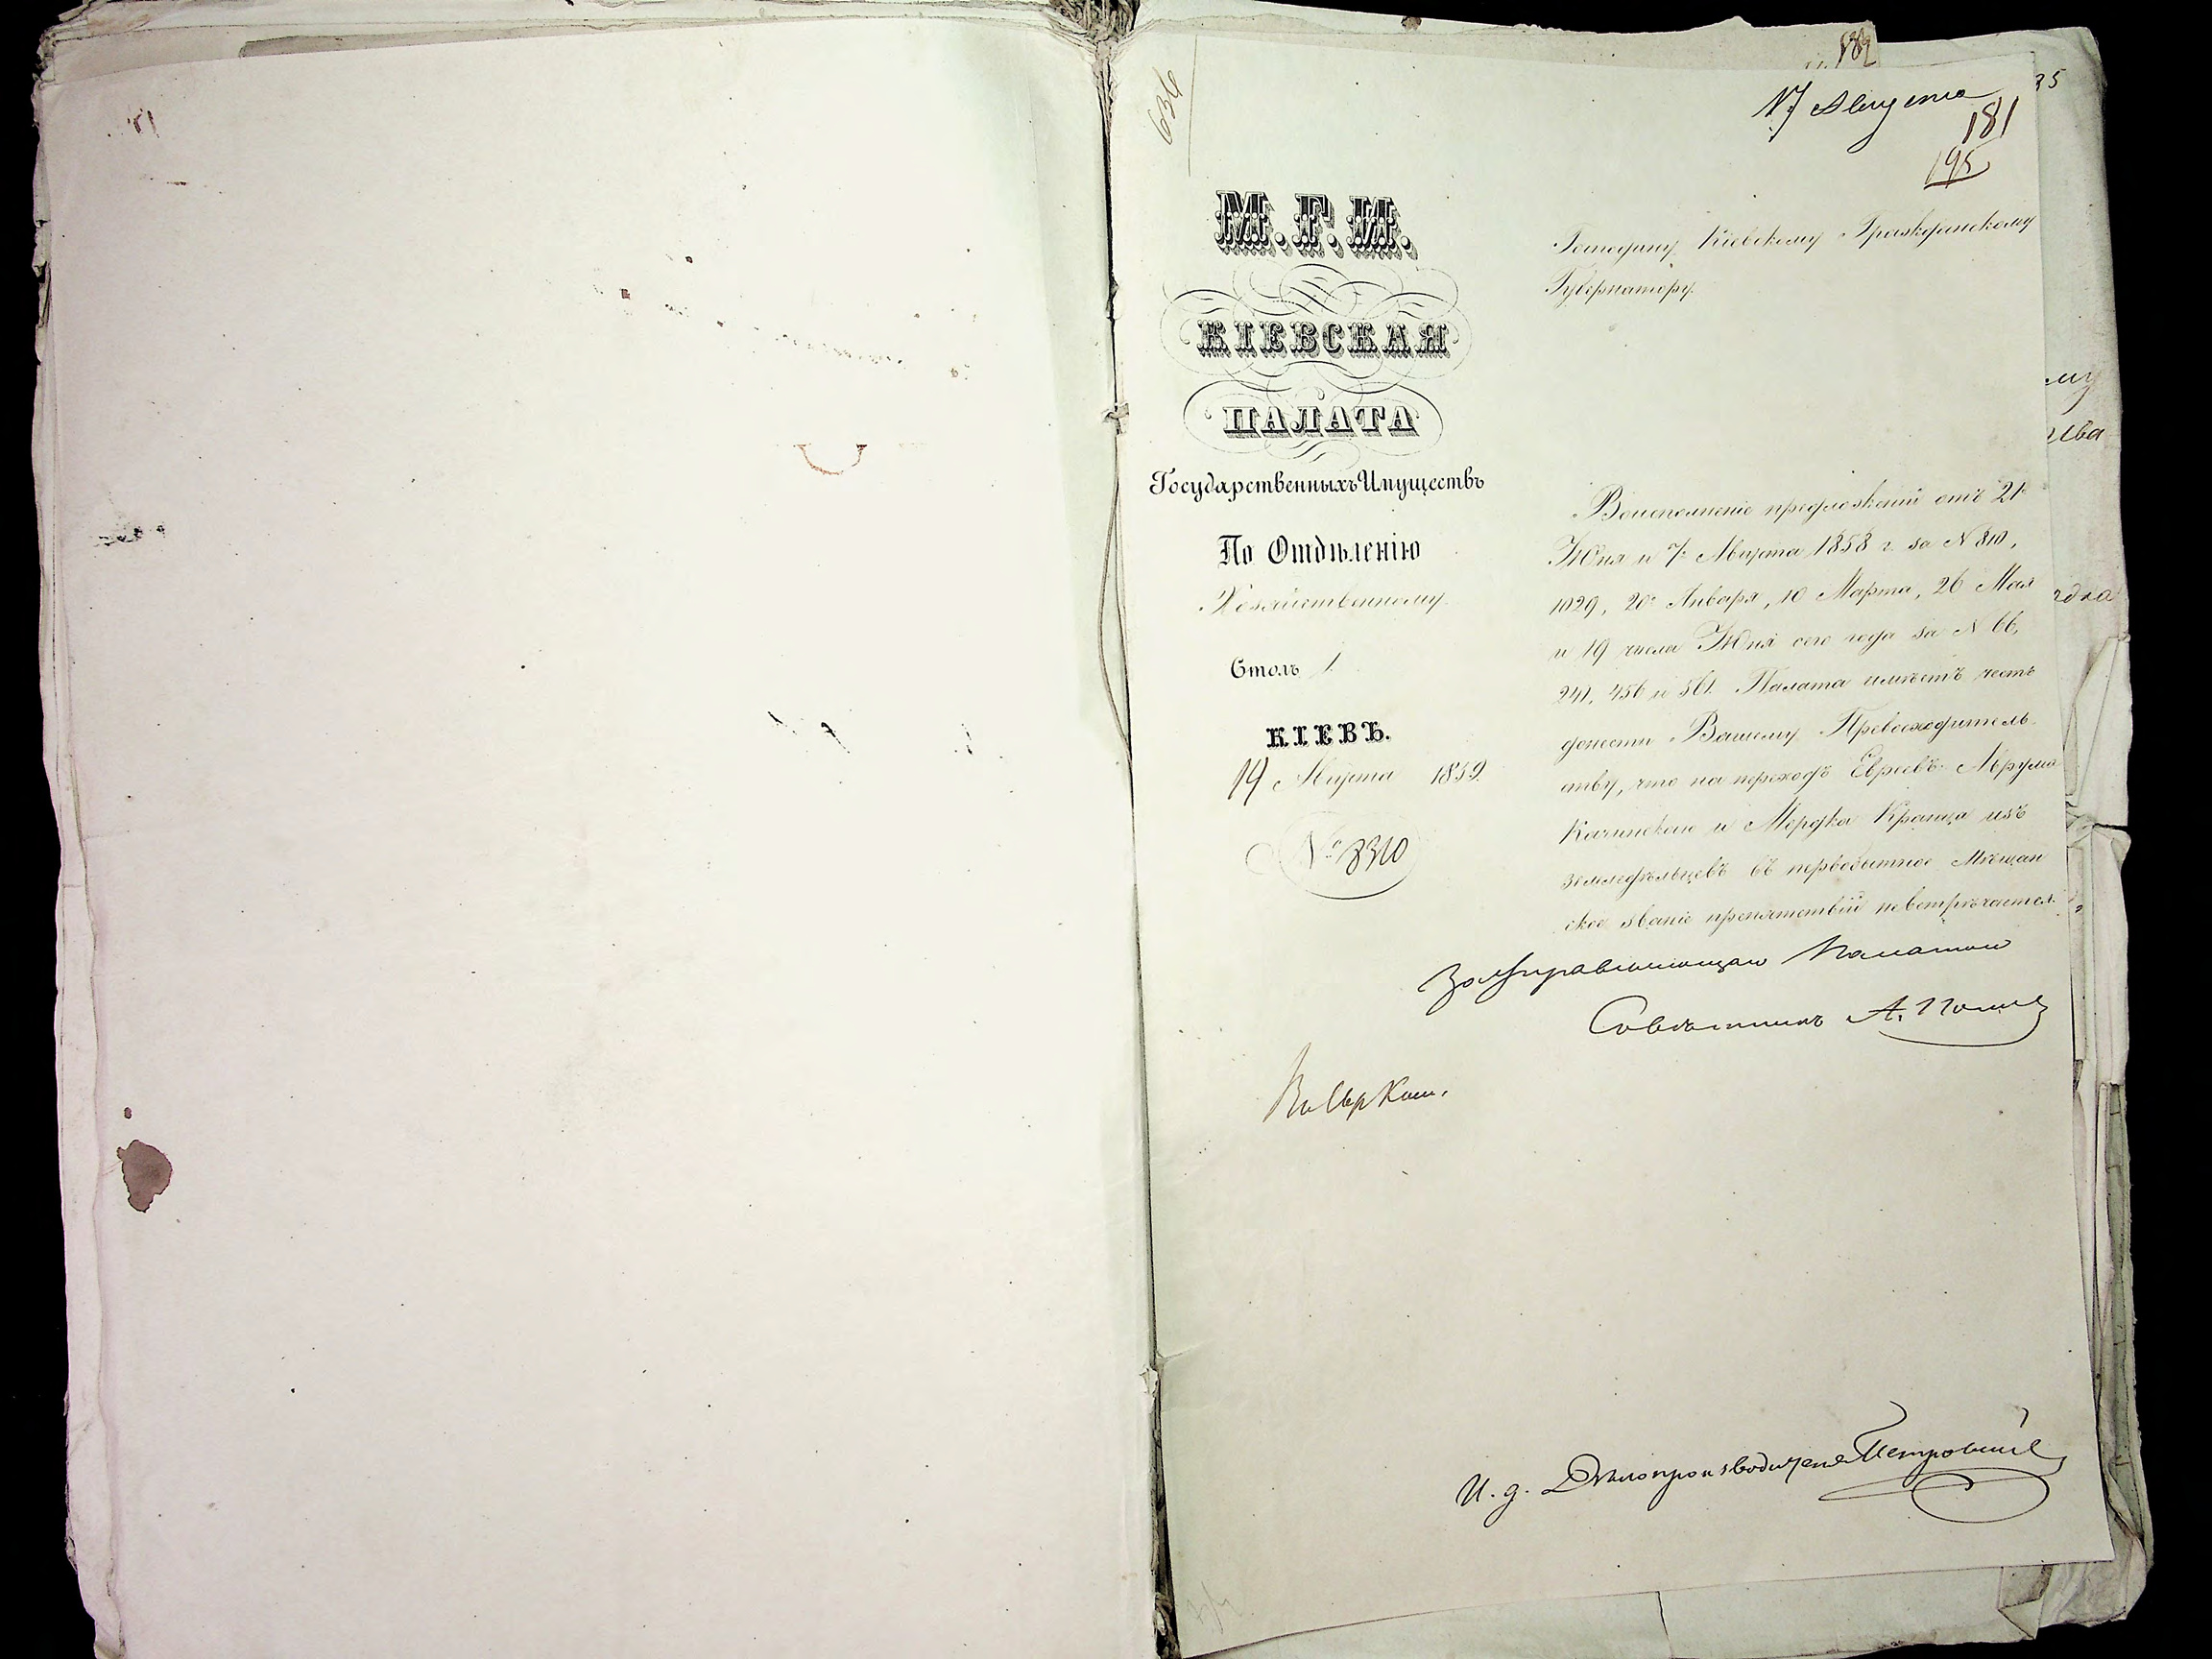 182
35
636
17 Августа
181
195
М.Г.И.
КІЕВСКАЯ
ПАЛАТА
Государственныхъ Имуществъ
По Отдѣленію
Хозяйственному
Столъ 1
КІЕВЪ.
14 Августа 1859
№ 8310
Господину Кіевскому Гражданскому
Губернатору.
Воисполненіе предложеній отъ 21
Юня и 7 Августа 1858 г. за N 810,
1029, 20 Января, 10 Марта, 26 Мая
и 19 числа Юня сего года за N 66,
241, 456 и 561. Палата имѣетъ честь
донести Вашему Превосходитель-
ству, что на переходъ Евреевъ
Качинскаго и Мордка Кранца изъ
земледѣльцевъ въ первобытное Мѣщан
ское званіе препятствій невстрѣчается.
За Управляющаго Палатою
Совѣтникъ А.
И. д. Дѣлопроизводителя Петровскій